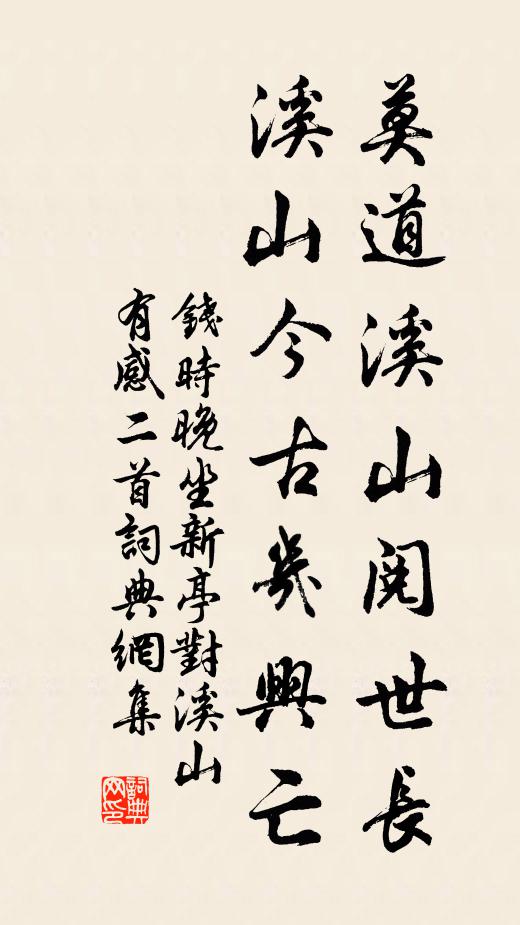 莫道溪山閱世長
溪山今古幾興亡
錢時晚坐新亭對溪山
有感二首詞典網集
詞典
网印